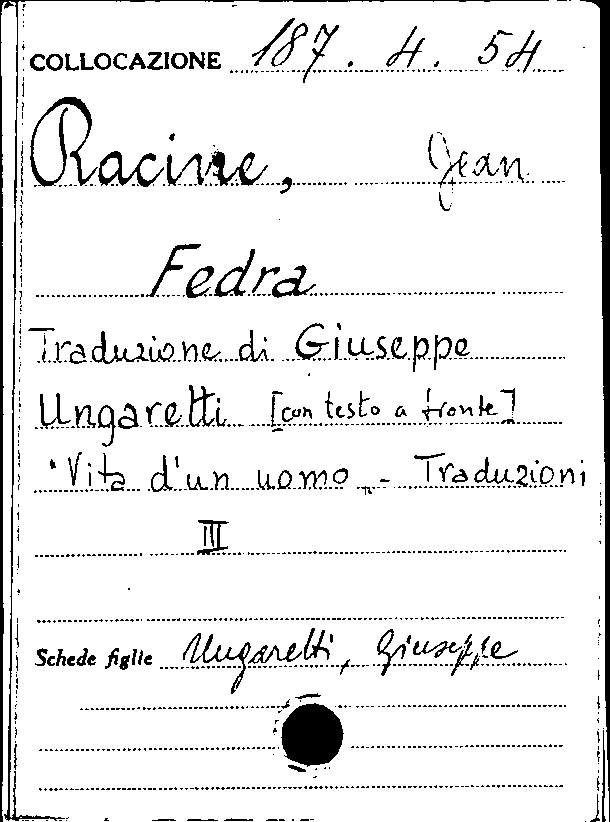 COLLOCAZIONE 187. 4. 54
Racine, Jean
Fedra
Traduzione di Giuseppe
Ungaretti [con testo a fronte]
"Vita d'un uomo„ - Traduzioni
III
Schede figlie Ungaretti, Giuseppe